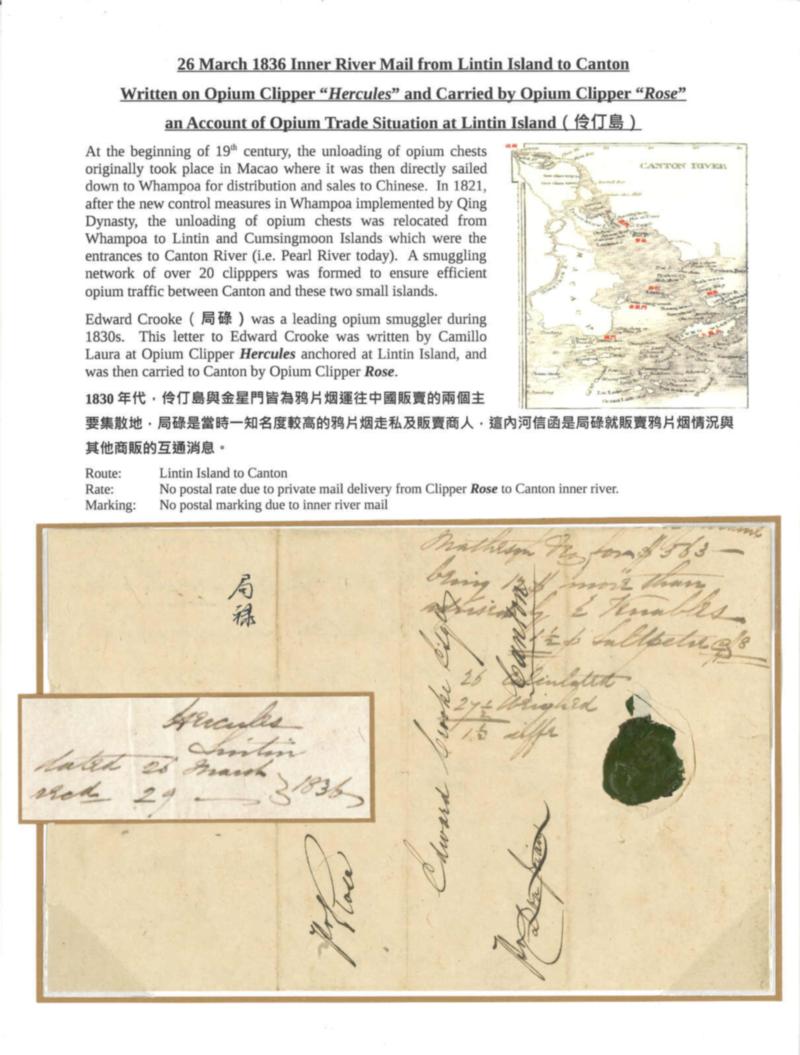 26 March 1836 Inner River Mail from Lintin Island to Canton
Written on Opium Clipper “Hercules” and Carried by Opium Clipper “Rose”
an Account of Opium Trade Situation at Lintin Island ( 伶仃島 )
At the beginning of 19th century, the unloading of opium chests
originally took place in Macao where it was then directly sailed
down to Whampoa for distribution and sales to Chinese. In 1821,
after the new control measures in Whampoa implemented by Qing
Dynasty, the unloading of opium chests was relocated from
Whampoa to Lintin and Cumsingmoon Islands which were the
entrances to Canton River (i.e. Pearl River today). A smuggling
network of over 20 clipppers was formed to ensure efficient
opium traffic between Canton and these two small islands.
CANTON RIVER
Edward Crooke ( 局碌 ) was a leading opium smuggler during
1830s. This letter to Edward Crooke was written by Camillo
Laura at Opium Clipper Hercules anchored at Lintin Island, and
was then carried to Canton by Opium Clipper Rose.
1830 年代，伶仃島與金星門皆為鴉片烟運往中國販賣的兩個主
要集散地，局碌是當時一知名度較高的鴉片烟走私及販賣商人，這內河信函是局碌就販賣鴉片烟情況與
其他商販的互通消息。
Route: Lintin Island to Canton
Rate: No postal rate due to private mail delivery from Clipper Rose to Canton inner river.
Marking: No postal marking due to inner river mail
局
碌
for $ 563 —
being more than
26 Calculated
Weighed
Canton
Edward Crooke
Hercules
Lintin
dated 26 March
recd 29 — } 1836
Rose